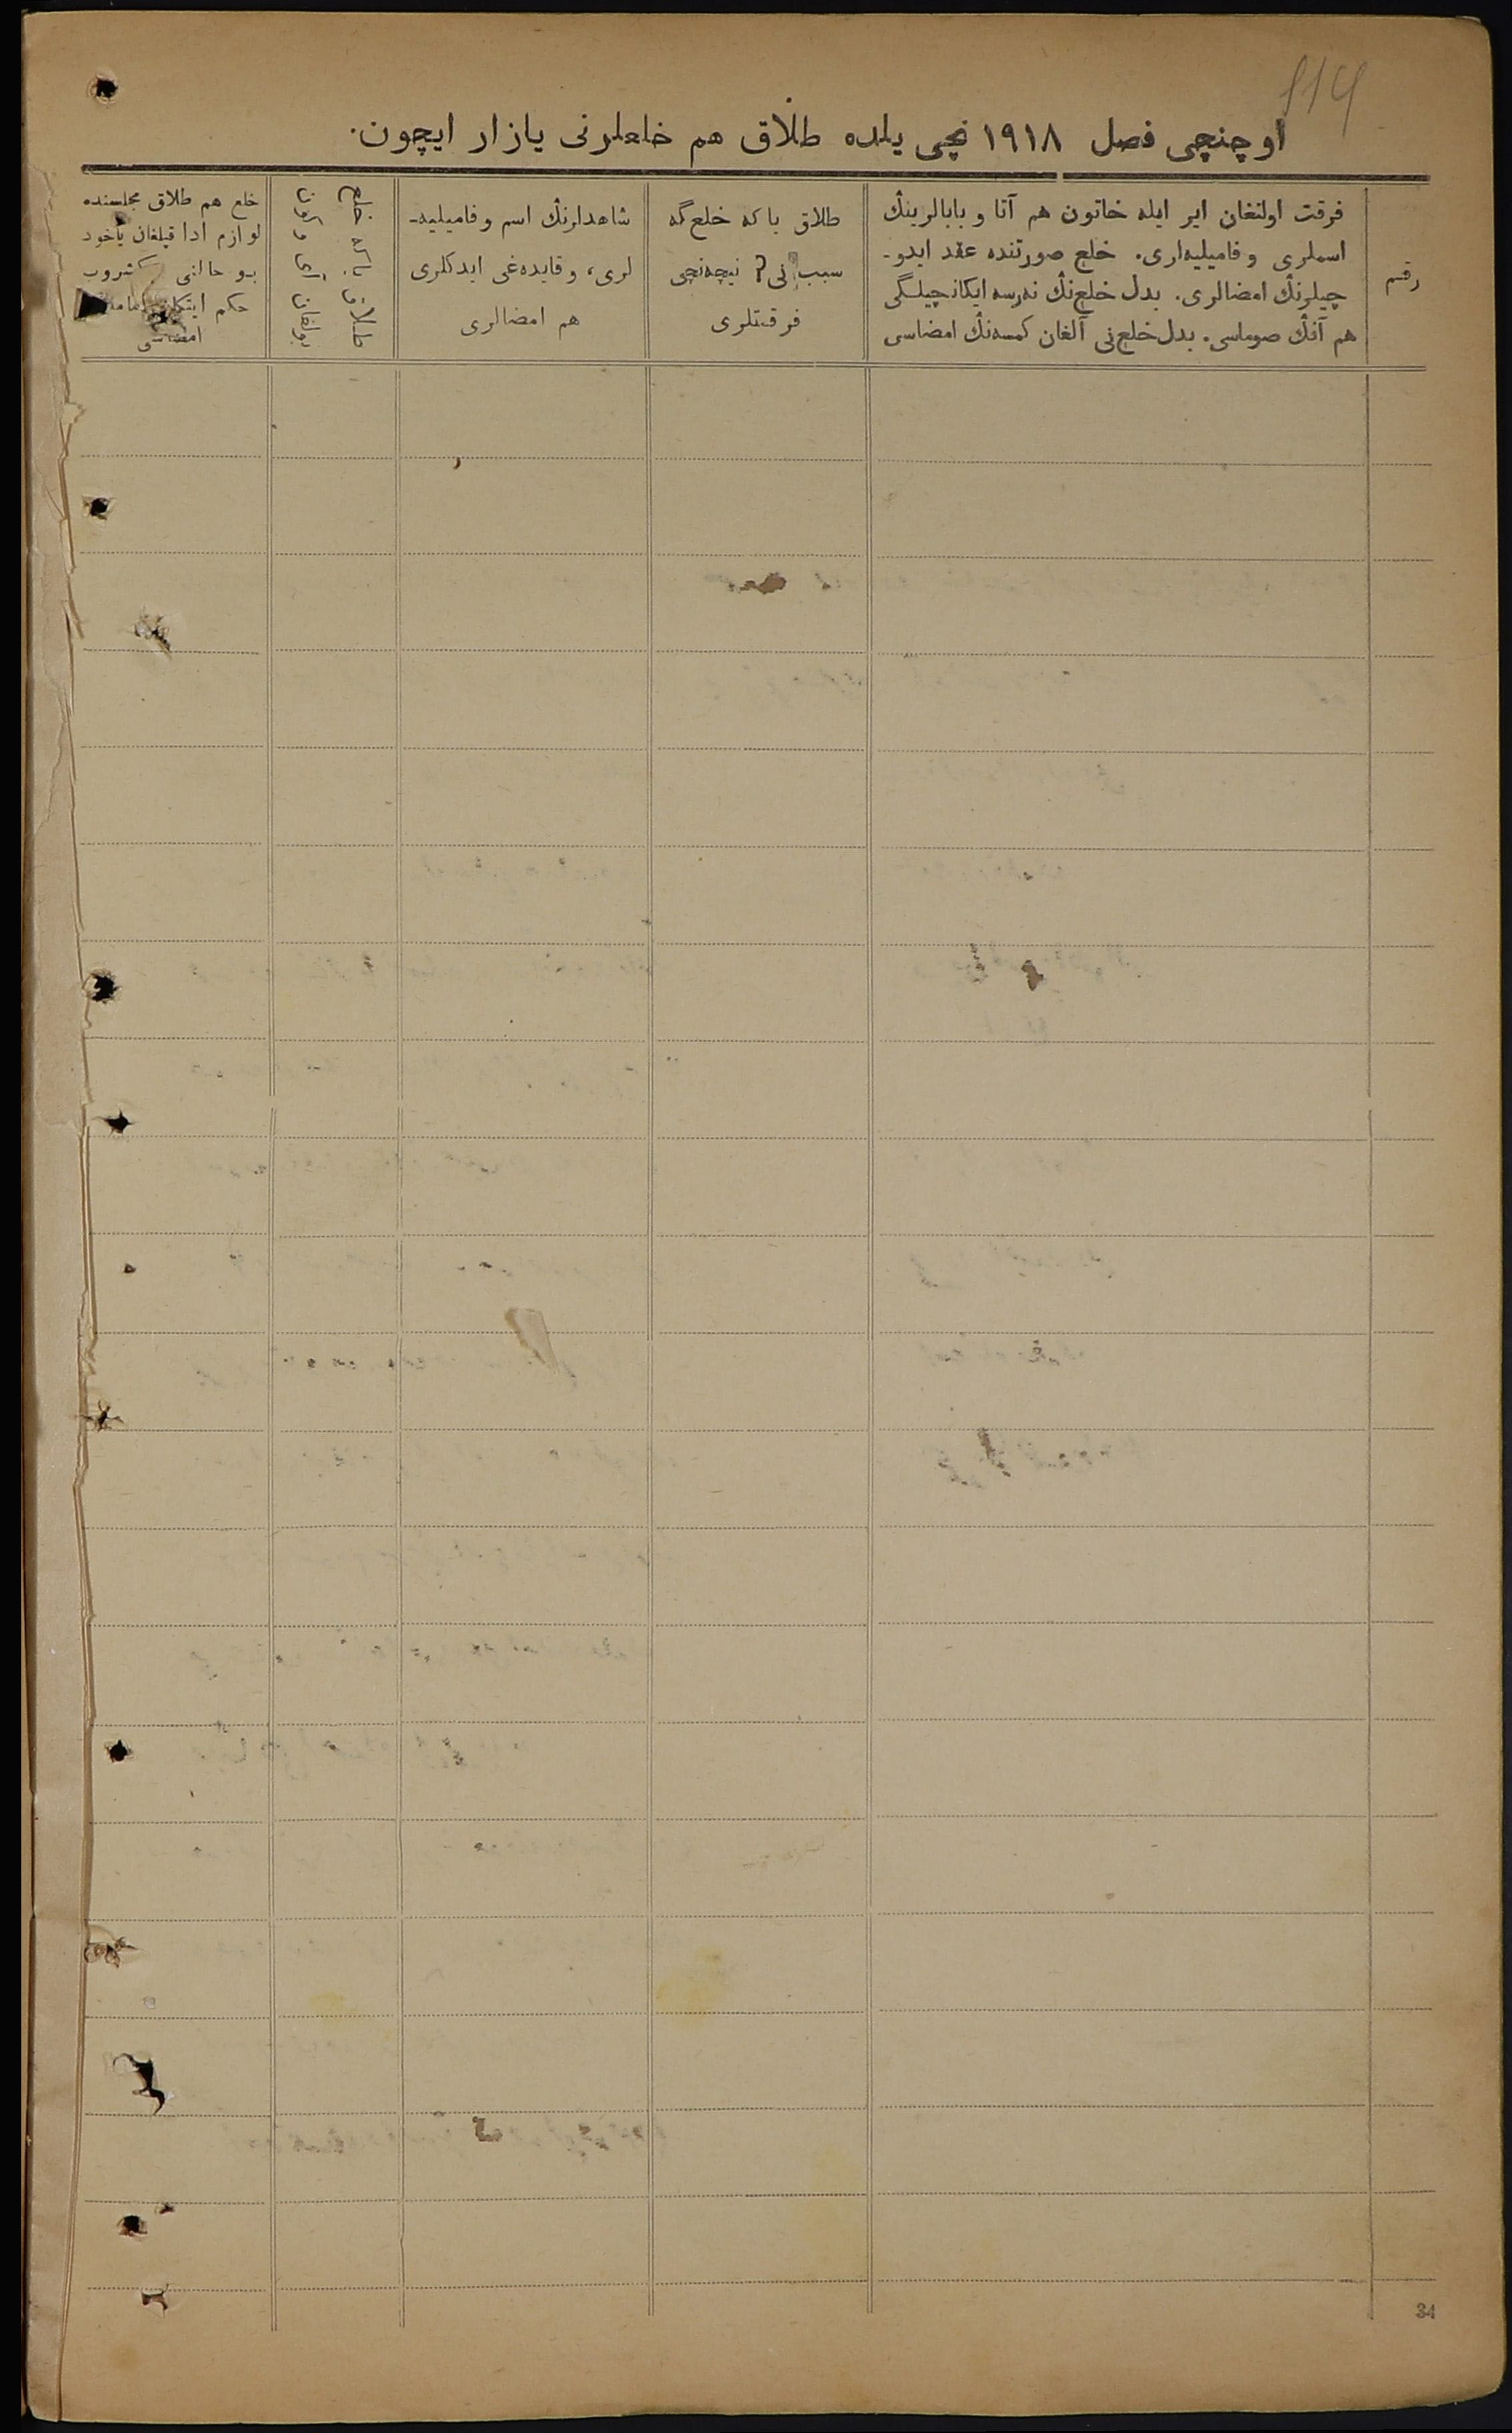 114
اوچنچی فصل ١٩١٨ نچی یلده طلاق هم خلعلرنی یازار ایچون.
رقم
فرقت اولنغان ایر ایله خاتون هم آتا و بابالرینڭ
اسملری و فامیلیه‌لری. خلع صورتنده عقد ایدو-
چیلرنڭ امضالری. بدل خلع‌نڭ نه‌رسه ایکانچیلگی
هم آنڭ صوماسی. بدل خلع‌نی آلغان کمسه‌نڭ امضاسی
طلاق یا که خلع گه
سبب نی؟ نیچه‌نچی
فرقتلری
شاهدلرنڭ اسم و فامیلیه-
لری، و قایده‌غی ایدکلری
هم امضالری
خلع یا که طلاق
بولغان آی و کون
خلع هم طلاق مجلسنده
لوازم ادا قیلغان یاخود
بو حالنی کشروب
حکم ایتکان امامنڭ
امضاسی
34